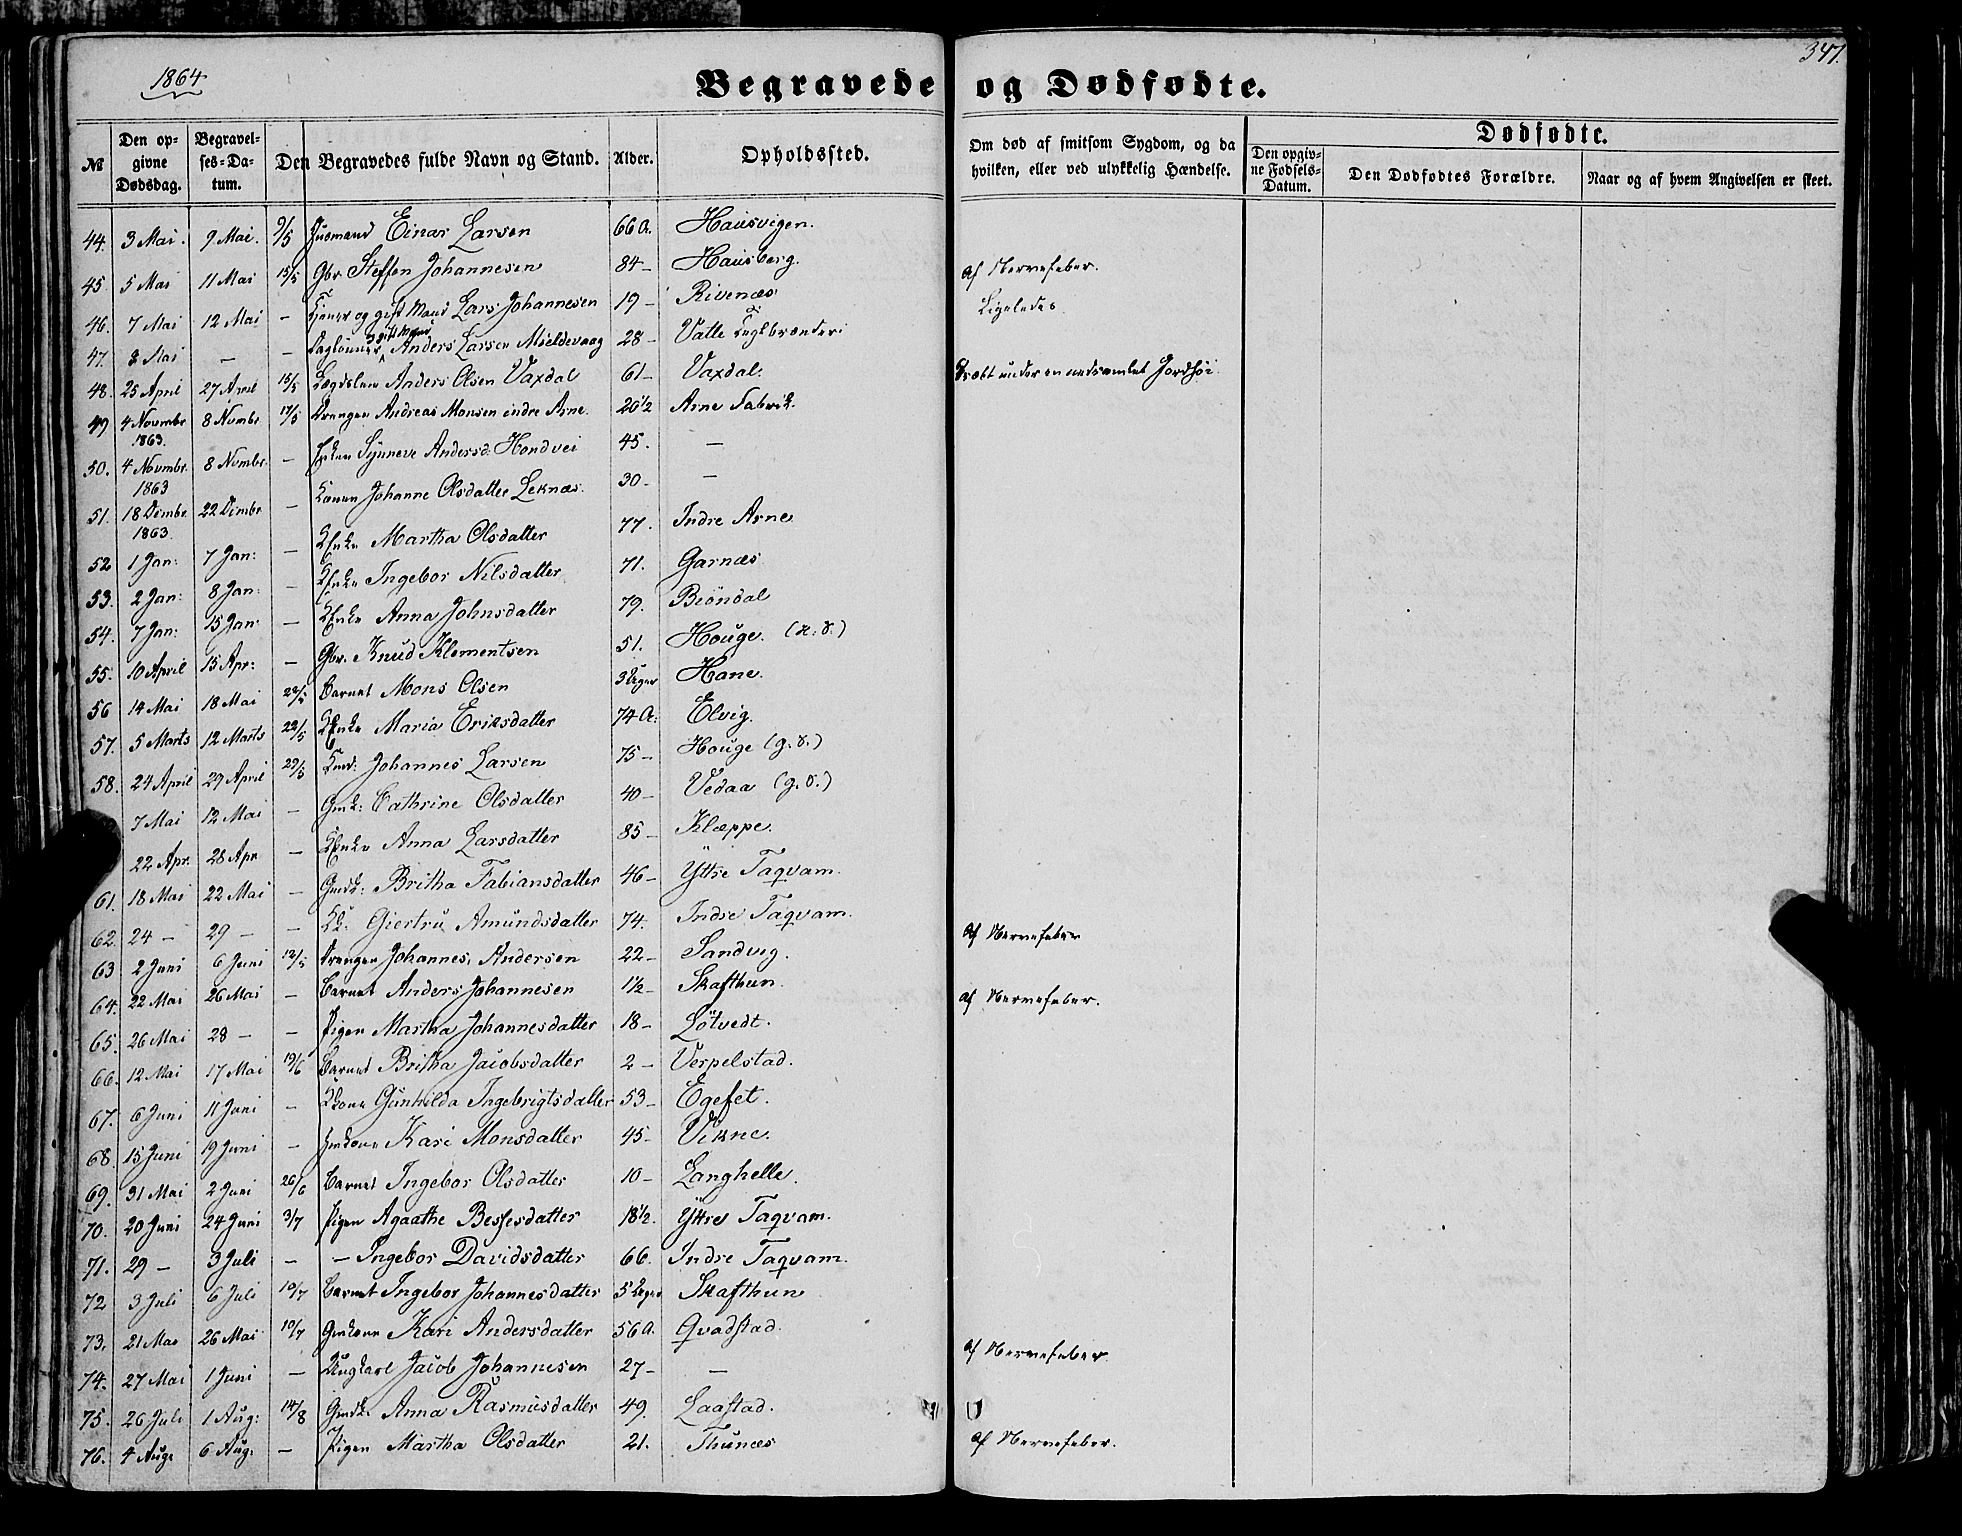 1864
347.
Begravede og Dødfødte.
№
Den opgivne Dødsdag.
Begravelses-Datum.
Den Begravedes fulde Navn og Stand.
Alder.
Opholdssted.
Om død af smitsom Sygdom, og da hvilken, eller ved ulykkelig Hændelse.
Dødfødte.
Den opgivne Fødsels-Datum.
Den Dødfødtes Forældre.
Naar og af hvem Angivelsen er skeet.
44. 3 Mai. 9 Mai. 9/5 Husmand Einar Larsen 66 A. Hausvigen.
45. 5 Mai 11 Mai 15/5 Gbr Steffen Johannesen 84 – Hausberg. af Nervefeber.
46. 7 Mai 12 Mai – og gift Mand Lars Johannesen 19 – Rivenæs Ligeledes
47. 8 Mai – – Daglönner gift Mand Anders Larsen Mieldevaag 28 – Valle Teglbrænderi
48. 25 April 27 April 15/5 Lægdslem Anders Olsen Vaxdal 61 – Vaxdal. Dræbt under en nedramlet Jordhøi
49 4 Novmbr 1863. 8 Nvmbr 17/5 Drengen Andreas Monsen indre Arne. 20 1/2 Arne Fabrik.
50. 4 Novmbr. 1863 8 Nvmbr. – Enken Synneve Andersd. Hondvei 45. –
51. 18 Dcmbr. 1863. 22 Dcmbr – Konen Johanne Olsdatter Leknæs. 30 – –
52 1 Jan: 7 Jan: – Martha Olsdatter 77. Indre Arne
53. 2 Jan: 8 Jan: – Ingebor Nilsdatter 71. Garnæs
54. 7 Jan: 15 Jan: – Anna Johnsdatter 79. Biöndal
55. 10 April 15 Apr: – Gbr. Knud Klementsen 51. Houge. (n. d.)
56 14 Mai 18 Mai 22/5 Barnet Mons Olsen 3 Uger Hane.
57. 5 Marts 12 Marts 22/5 Maria Eriksdatter 74 A. Elvig.
58. 24 April 29 April 29/5 Johannes Larsen 75 – Houge (g. d.)
7 Mai 12 Mai – Gmk: Cathrine Olsdatter 40 – Vedaa (g. d.)
22 Apr. 28 Apr – Anna Larsdatter 85 – Klæppe.
61. 18 Mai 22 Mai – Gmdk: Britha Fabiansdatter 46 – Yttre Taqvam.
62. 24 – 29 – – Giertru Amundsdatter 74. Indre Taqvam.
63 2 Juni 6 Juni 12/5 Drengen Johannes Andersen 22 – Sandvig. af Nervefeber
64. 22 Mai 26 Mai – Barnet Anders Johannesen 1 1/2 – Skafthun.
65. 26 Mai 28 – – Pigen Martha Johannesdatter 18 – Lötvedt. af Nervefeber.
66. 12 Mai 17 Mai 19/6 Barnet Britha Jacobsdatter 2 – Verpelstad.
67. 6 Juni 11 Juni – Gunhilda Ingebrigtsdatter 53 – Egefet.
68. 15 Juni 19 Juni – Kari Monsdatter 45 – Vikne.
69. 31 Mai 2 Juni 26/6 Barnet Ingebor Olsdatter 10 – Langhelle.
70. 20 Juni 24 Juni 3/7 Pigen Agaathe Bessesdatter 18 1/2. Yttre Taqvam.
71. 29 – 3 Juli – – Ingebor Davidsdatter 66. Indre Taqvam.
72 3 Juli 6 Juli 10/7 Barnet Ingebor Johannesdatter 5 Uger Skafthun
73. 21 Mai 26 Mai 10/7 Gmkone Kari Andersdatter 56 A. Qvadstad.
74. 27 Mai 1 Juni – Ungkarl Jacob Johannesen 27 – – af Nervefeber
75. 26 Juli 1 Aug: 14/8 Gmdk. Anna Rasmusdatter 49. Laastad.
76. 4 Aug: 6 Aug: – Pigen Martha Olsdatter 21. Thunæs af Nervefeber.